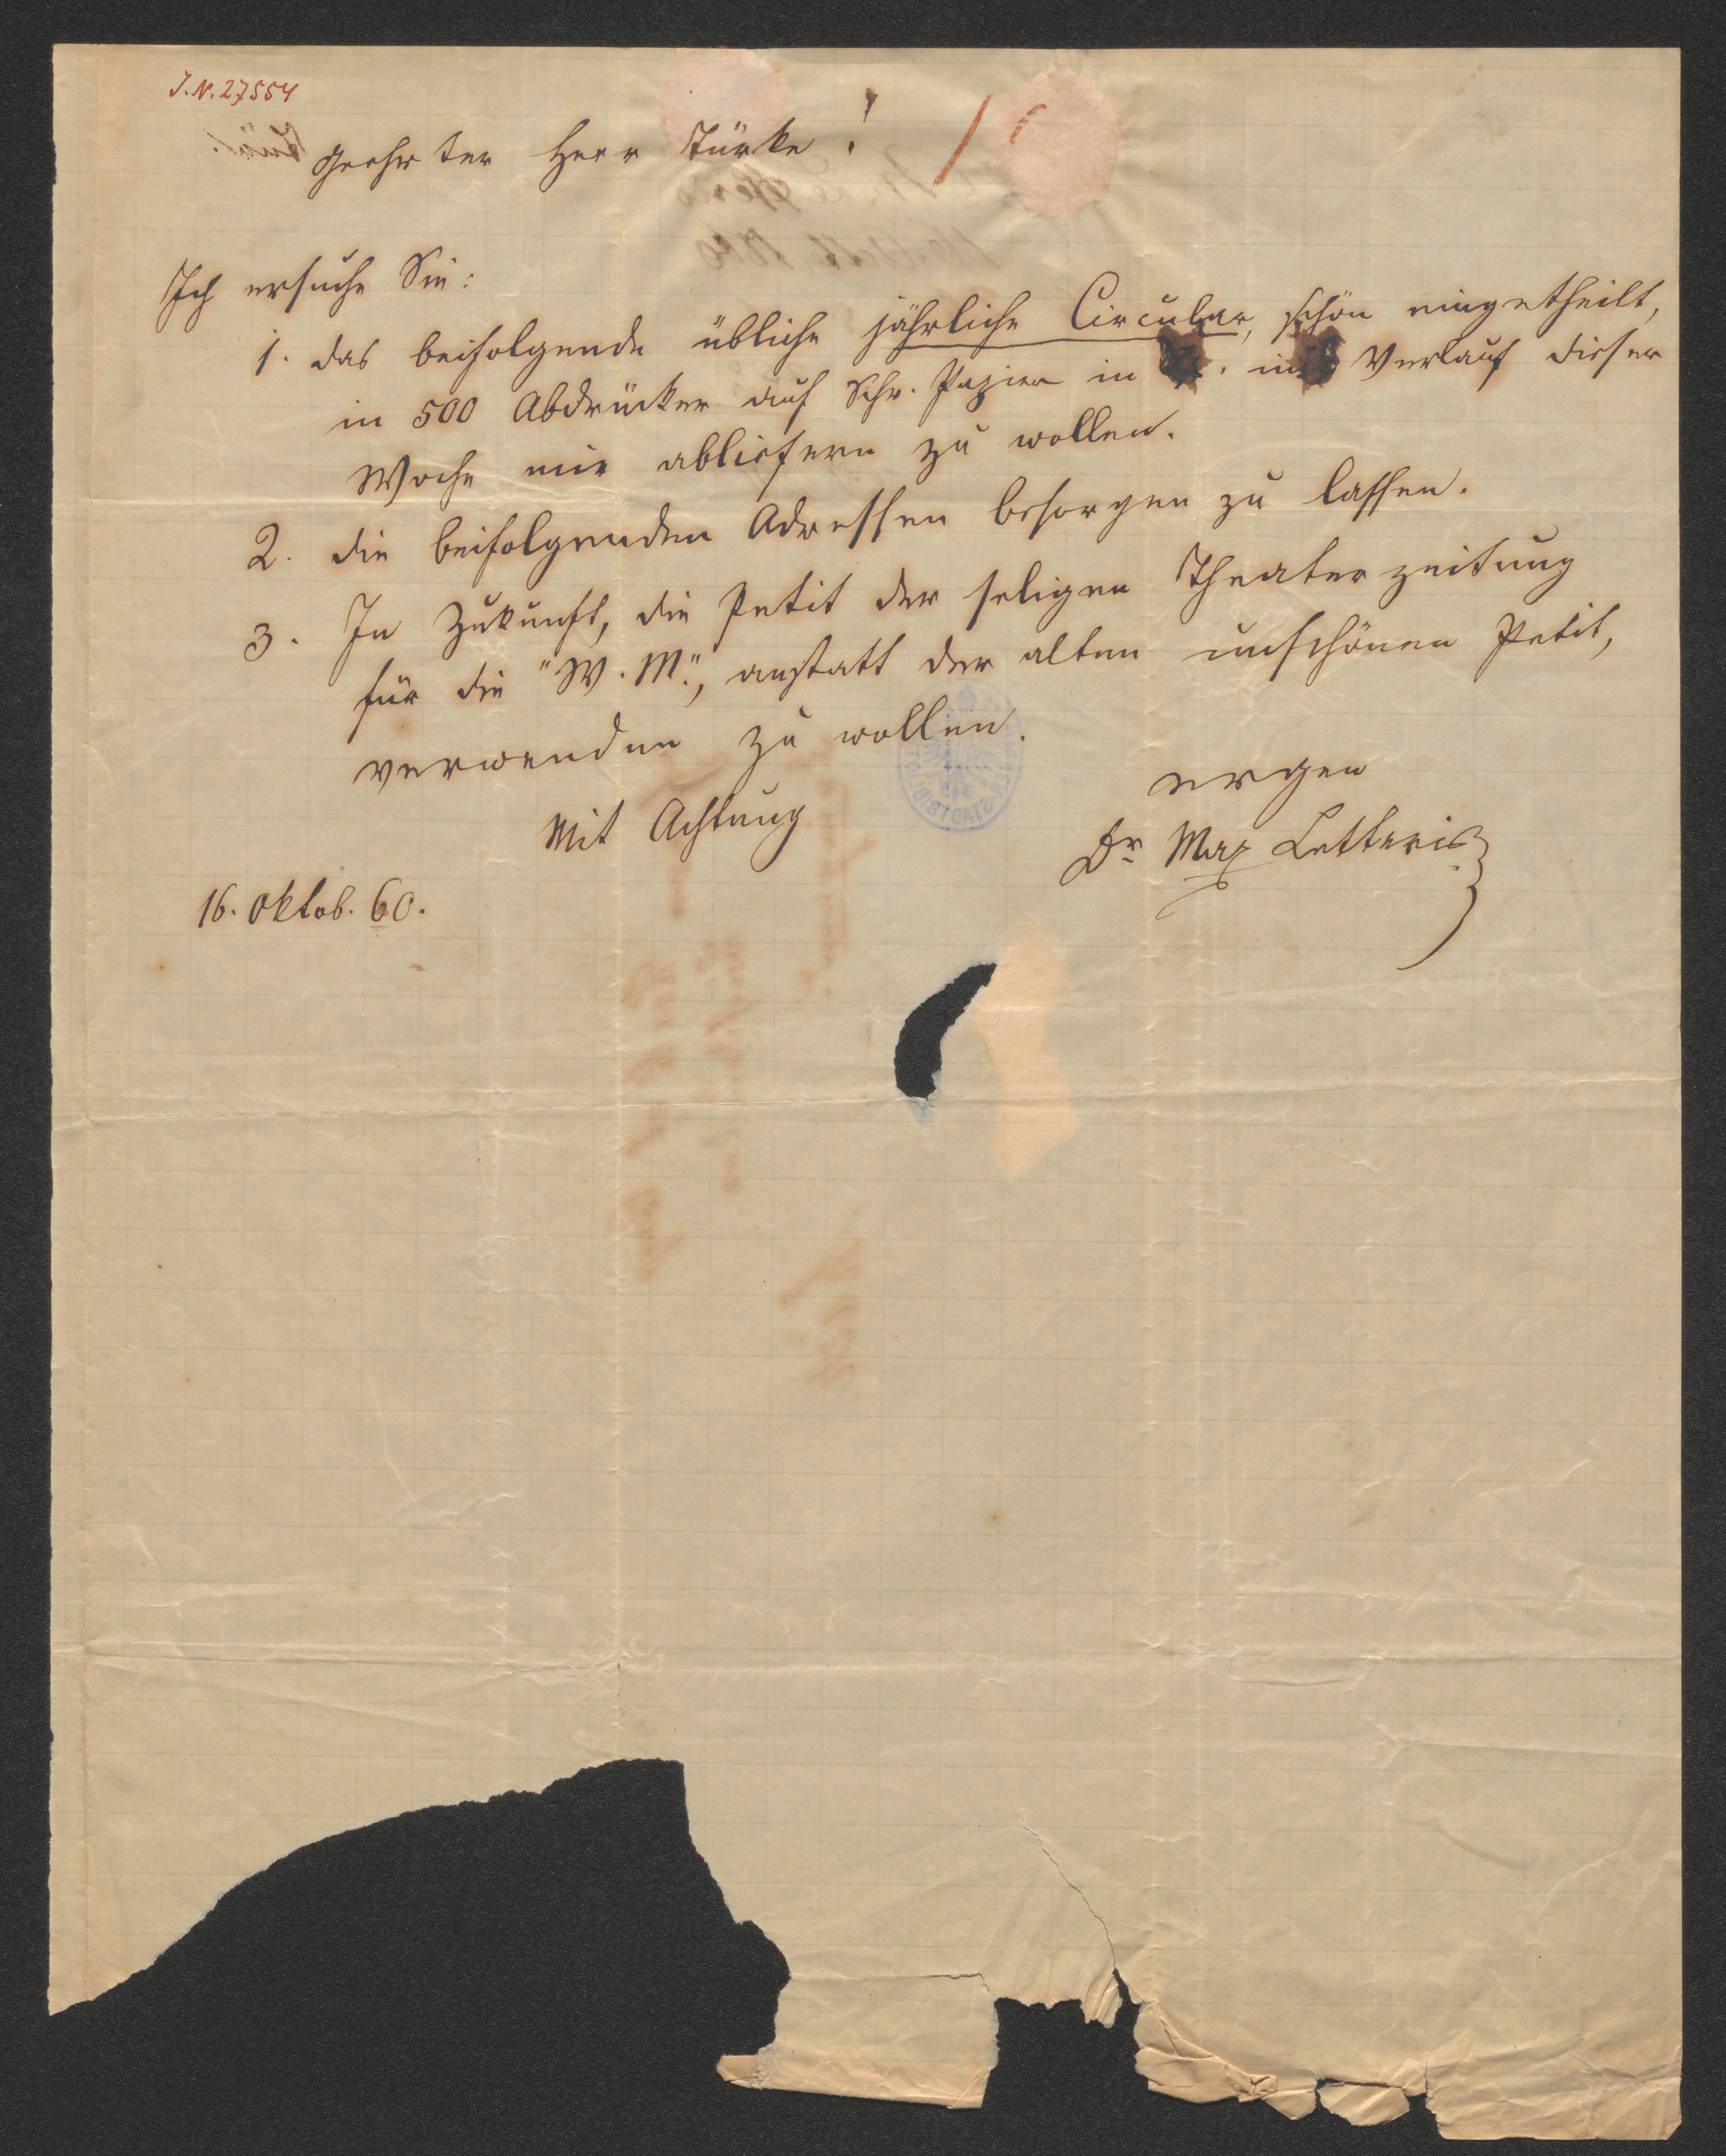 J. N. 27554
Geehrter Herr Türke!
Ich ersuche Sie:
1. das beifolgende übliche jährliche Circular, schön eingetheilt,
in 500 Abdrücken auf Schr. Papier in im Verlauf dieser
Woche mir abliefern zu wollen.
2. die beifolgenden Adressen besorgen zu lassen.
3. In Zukunft, die Petit der seligen Theaterzeitung
für die "W. M.", anstatt der alten unschönen Petit,
verwenden zu wollen.
Mit Achtung
ergen
Dr Max Letteris
16. Oktob. 60.